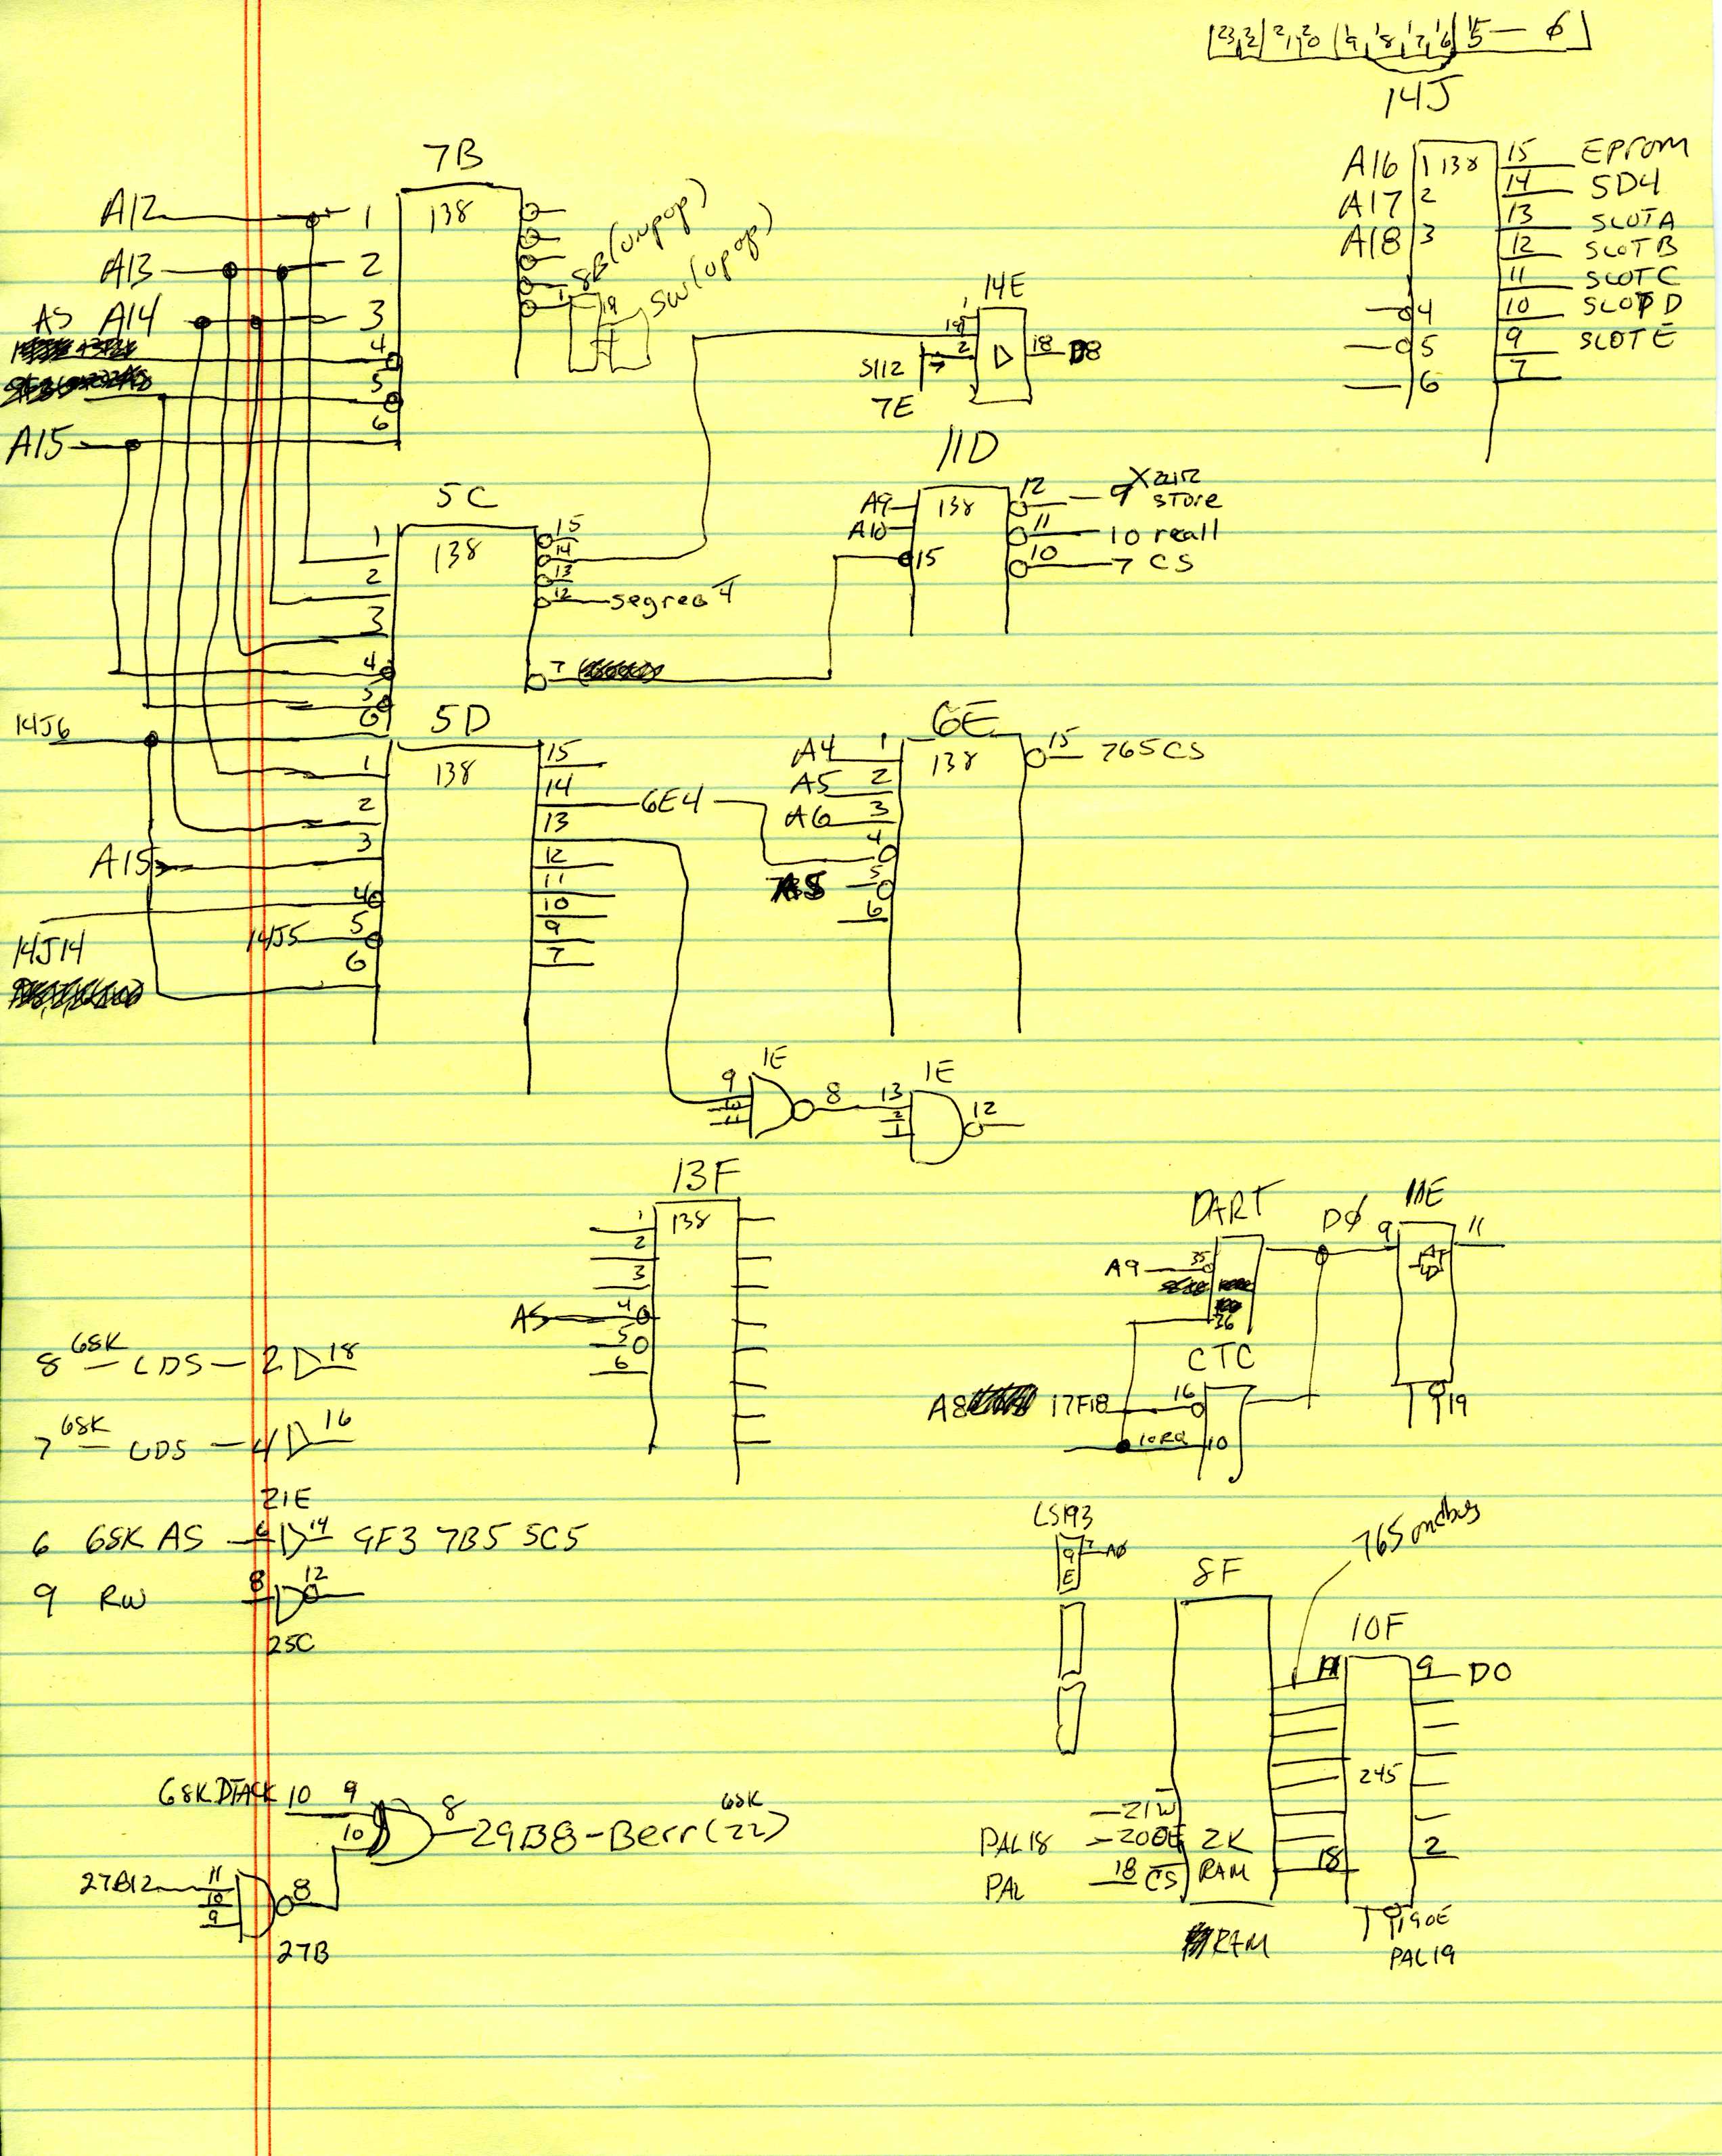 23,22|21,20|19,18,17,16|15—0
14J
A16 1 138 15 EPROM
A17 2 14 5D4
A18 3 13 SLOTA
12 SLOTB
11 SLOTC
4 10 SLOTD
5 9 SLOTE
6 7
7B
A12 1 138
A13 2
AS A14 3
4
5
A15 6
1 8B (unpop)
19 SW (upop)
14E
1
19
S112 2 18 D8
7E
5C
1 138 15
2 14
3 13
4 12 segreg
5 7
6
11D
A9 138 12 9 store
A10 11 10 reall
15 10 7 CS
14J6
5D
1 138 15
2 14 6E4
3 13
A15
4 12
14J14 14J5 5 11
6 10
9
7
6E
A4 1 138 15 765CS
A5 2
A6 3
4
5
6
1E
9 8
10
11
1E
13 12
2
1
13F
1 138
2
3
AS 4
5
6
DART
D0
11E
A9 35 9 11
36
CTC
A8 17F18 16 19
IORQ 10
8 68K LDS 2 18
7 68K UDS 4 16
21E
6 68K AS 6 14 9F3 7B5 5C5
9 RW 8 12
25C
LS193
9E 7 A0
8F
765 on dbus
10F
11 9 D0
245
21W
PAL18 20OE 2K
PAL 18 CS RAM 18 2
RAM
19OE
PAL19
68K DTACK 10 9 8 29B8-Berr(22) 68K
10
27B12 11 8
10
9
27B